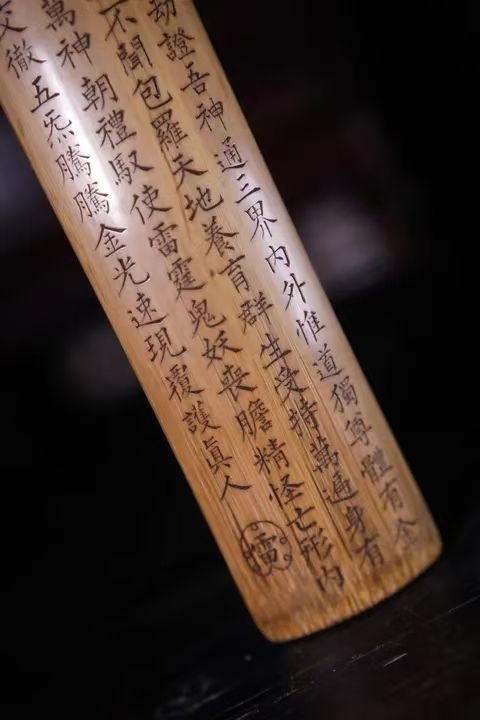 劫證吾神通三界內外惟道獨尊體有金
不聞包羅天地養育群生受持萬遍身有
萬神朝禮馭使雷霆鬼妖喪膽精怪亡形內
交徹五炁騰騰金光速現覆護眞人